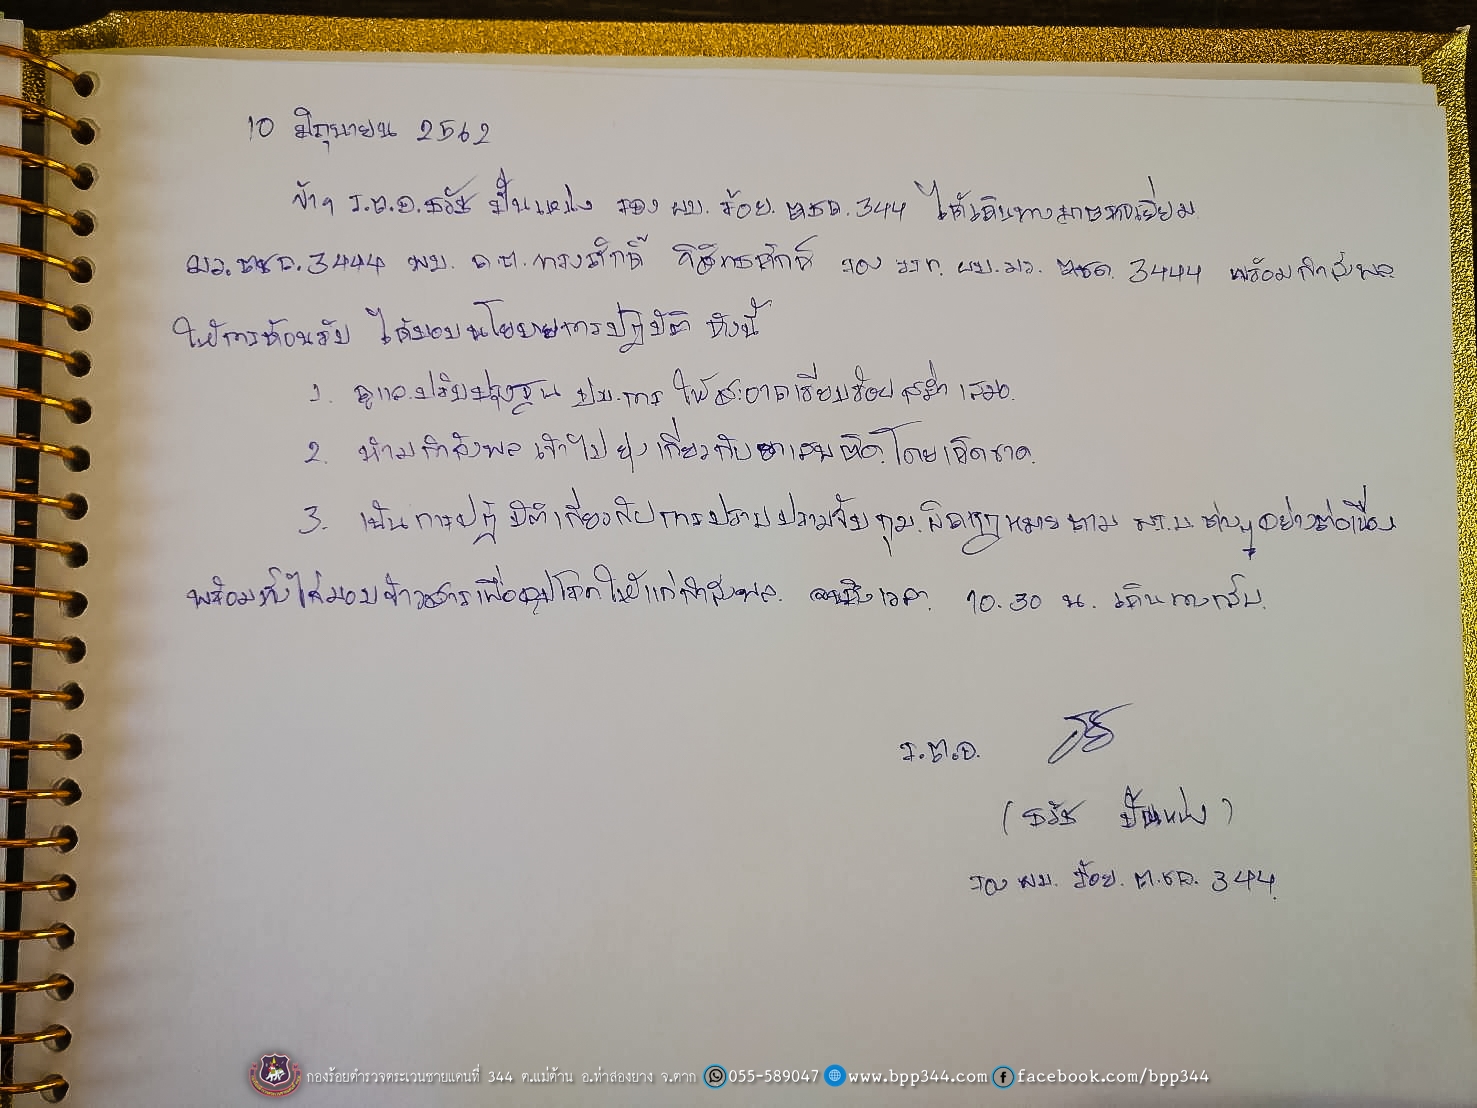 10 มิถุนายน 2562
ข้าฯ ร.ต.อ.ธวัช ปั้นแหน่ง รอง ผบ. ร้อย. ตชด. 344 ได้เดินทางมาตรวจเยี่ยม
มว.ตชด. 3444 พบ ด.ต. ทรงศักดิ์ รอง ผบ.มว. ตชด. 3444 พร้อมกำลังพล
ให้การต้อนรับ ได้มอบนโยบายการปฏิบัติ ดังนี้
1. ดูแลปรับปรุงฐาน ปบ.การ ให้สะอาดเรียบร้อยสม่ำเสมอ.
2. ห้ามกำลังพลเข้าไปยุ่งเกี่ยวกับยาเสพติดโดยเด็ดขาด.
3. เน้นการปฏิบัติเกี่ยวกับการปราบปรามจับกุมผิดกฎหมายตาม พ.ร.บ. ต่างๆอย่างต่อเนื่อง
พร้อมทั้งได้มอบข้าวสารเพื่ออุปโภคให้แก่กำลังพล. จนถึงเวลา 10.30 น. เดินทางกลับ.
ร.ต.อ.
( ธวัช ปั้นแหน่ง )
รอง ผบ. ร้อย. ต.ชด. 344
กองร้อยตำรวจตระเวนชายแดนที่ 344 ต.แม่ต้าน อ.ท่าสองยาง จ.ตาก 055-589047 www.bpp344.com facebook.com/bpp344